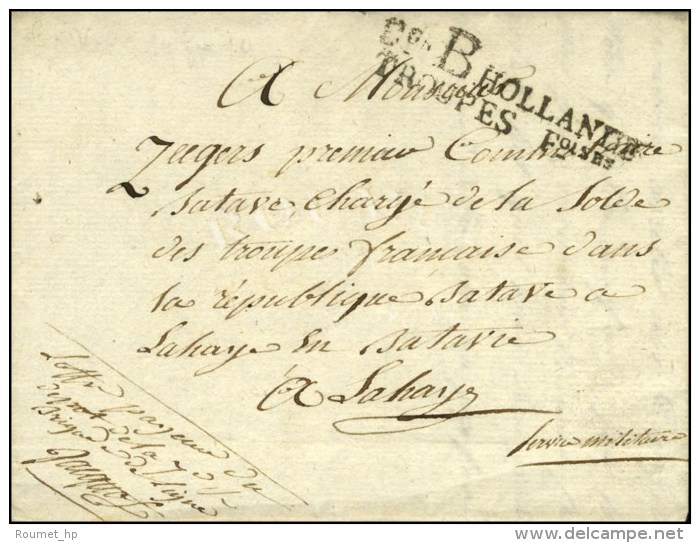 Don B HOLLANDE
TROUPES Foises
A Monsieur
Zeegers premier Commissaire
Batave Chargé de la Solde
des troupe francaise dans
la république batave a
Lahaye en batavie
A Lahaye
Service militaire
L'offr payeur du
de la 7e
Brigade de ligne
Roumet_hp
©delcampe.net